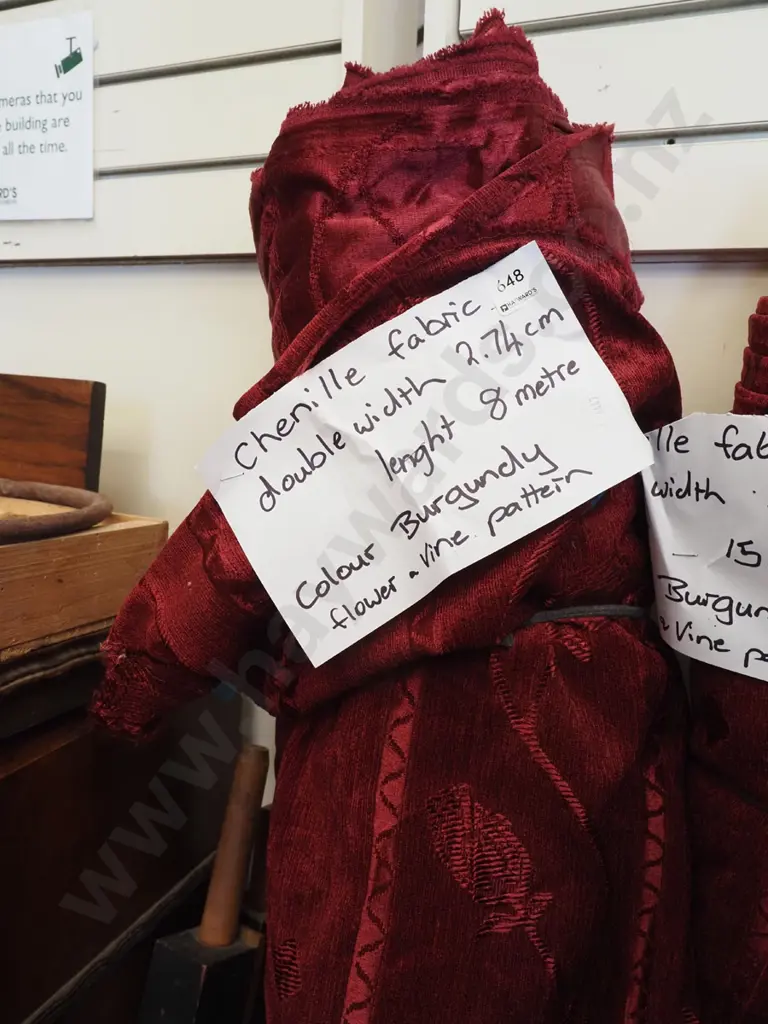 meras that you
building are
all the time.
RD'S
648
HAYWARD'S
Chenille fabric
double width 2.74cm
lenght 8 metre
Colour Burgundy
flower & vine pattein
lle fab
width
15
Burgun
& Vine pa
www.haywards.co.nz